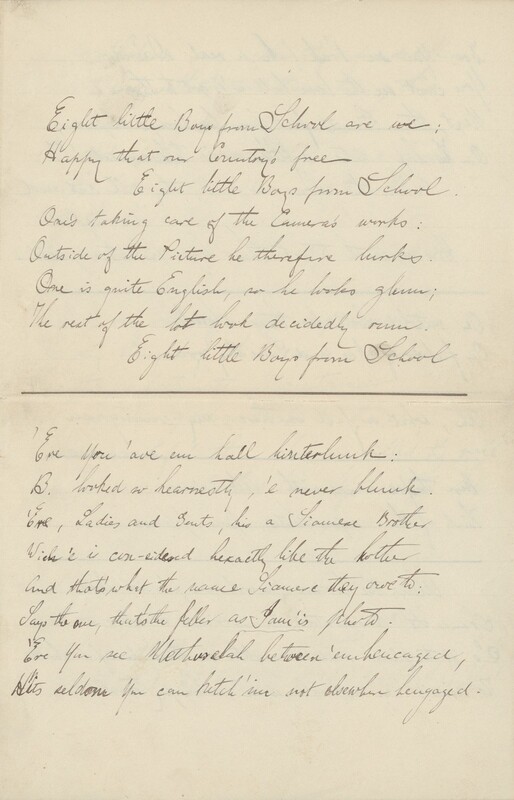 Eight little Boys from School are we;
Happy that our Country's free
Eight little Boys from School.
One's taking care of the Camera's works:
Outside of the Picture he therefore lurks.
One is quite English, so he looks glum;
The rest of the lot look decidedly rum.
Eight little Boys from School
'Ere you 'ave em hall hinterlunk:
B. looked so hearnestly, 'e never blunk.
'Ere, Ladies and Gents, his a Siamese Brother
Wich 'e is con-sidered hexactly like the hother
And that's what the name Siamese they owe to:
Says the one, that's the feller as I am is photo.
'Ere you see Methuselah between 'em hencaged,
Hits seldom you can ketch 'im not elsewhere hengaged.